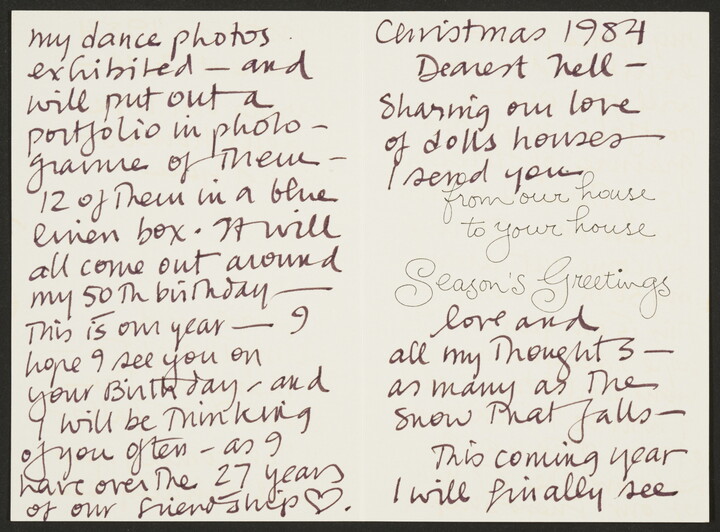 Christmas 1984
Dearest Nell —
Sharing our love
of dolls houses
I send you
from our house
to your house
Season's Greetings
love and
all my Thoughts —
as many as The
snow That falls —
This coming year
I will finally see
my dance photos
exhibited — and
will put out a
portfolio in photo-
gravure of Them —
12 of Them in a blue
linen box. It will
all come out around
my 50th birthday —
This is our year — I
hope I see you on
your Birthday — and
I will be Thinking
of you often — as I
have over The 27 years
of our friendship ♡.